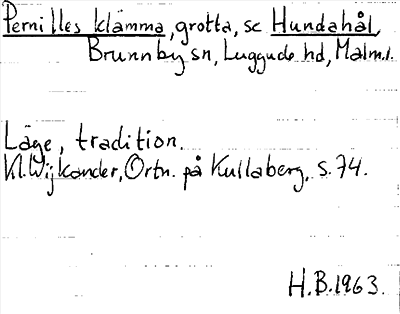 Pernilles klämma, grotta, se Hundahål,
Brunnby sn, Luggude hd, Malm.l.
Läge, tradition.
Kl. Wijkander, Ortn. på Kullaberg, s. 74.
H.B. 1963.